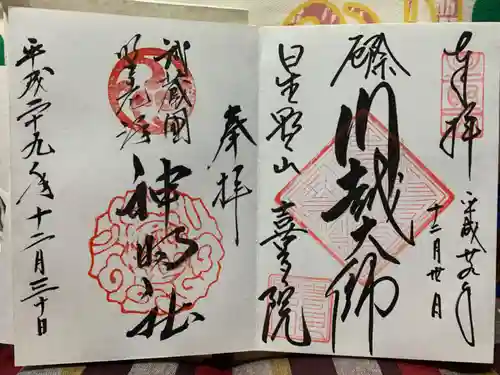 奉拝
平成廿九年
十二月卅日
厄除
川越大師
星野山
喜多院
奉拝
武蔵國
所澤
神明社
平成二十九年十二月三十日